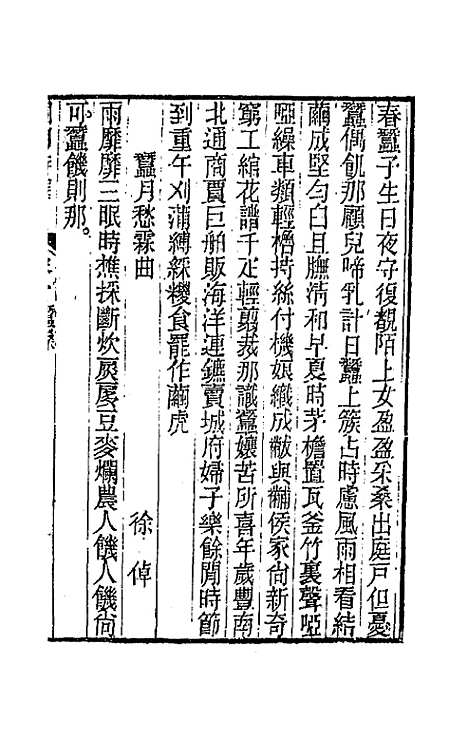 春蠶子生日夜守復覩陌上女盈盈采桑出庭戸但憂
蠶偶飢那顧兒啼乳計日蠶上簇占時慮風雨相看結
繭成堅勻白且膴淸和早夏時茅檐置瓦釜竹裏聲啞
啞繰車類輕櫓持絲付機娘織成黻與黼侯家尙新奇
窮工綰花譜千疋輕剪裁那識蠶孃苦所喜年歲豐南
北通商賈巨舶販海洋連鑣賣城府婦子樂餘閒時節
到重午刈蒲縛綵糉食罷作繭虎
蠶月愁霖曲 徐倬
雨靡靡三眠時樵採斷炊扊扅豆麥爛農人饑人饑尙
可蠶饑則那。